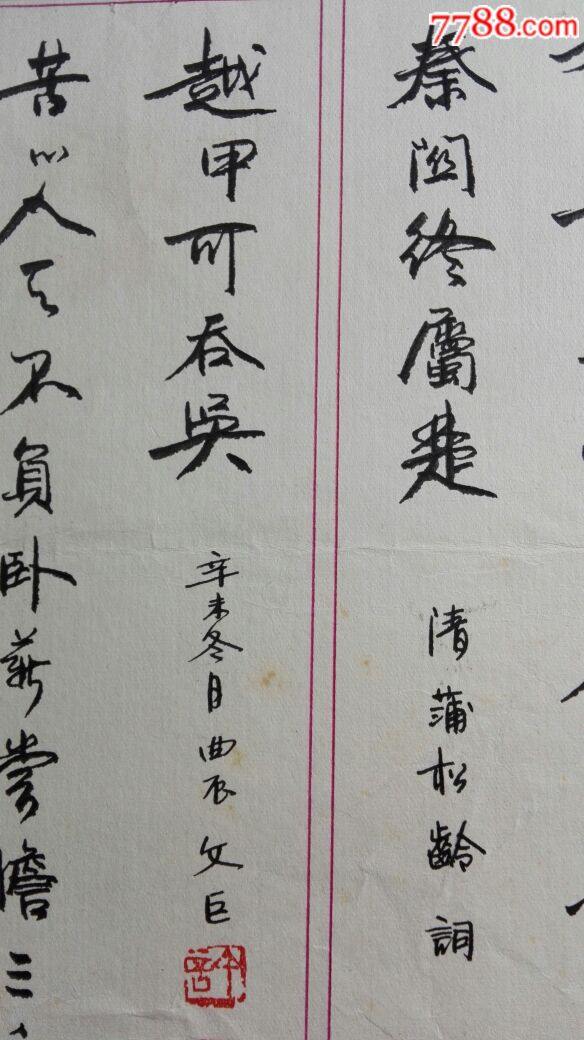 7788.com
秦関終屬楚
清蒲松齡詞
越甲可吞吳
辛未冬月曲辰文巨
苦心人天不負卧薪嘗膽三